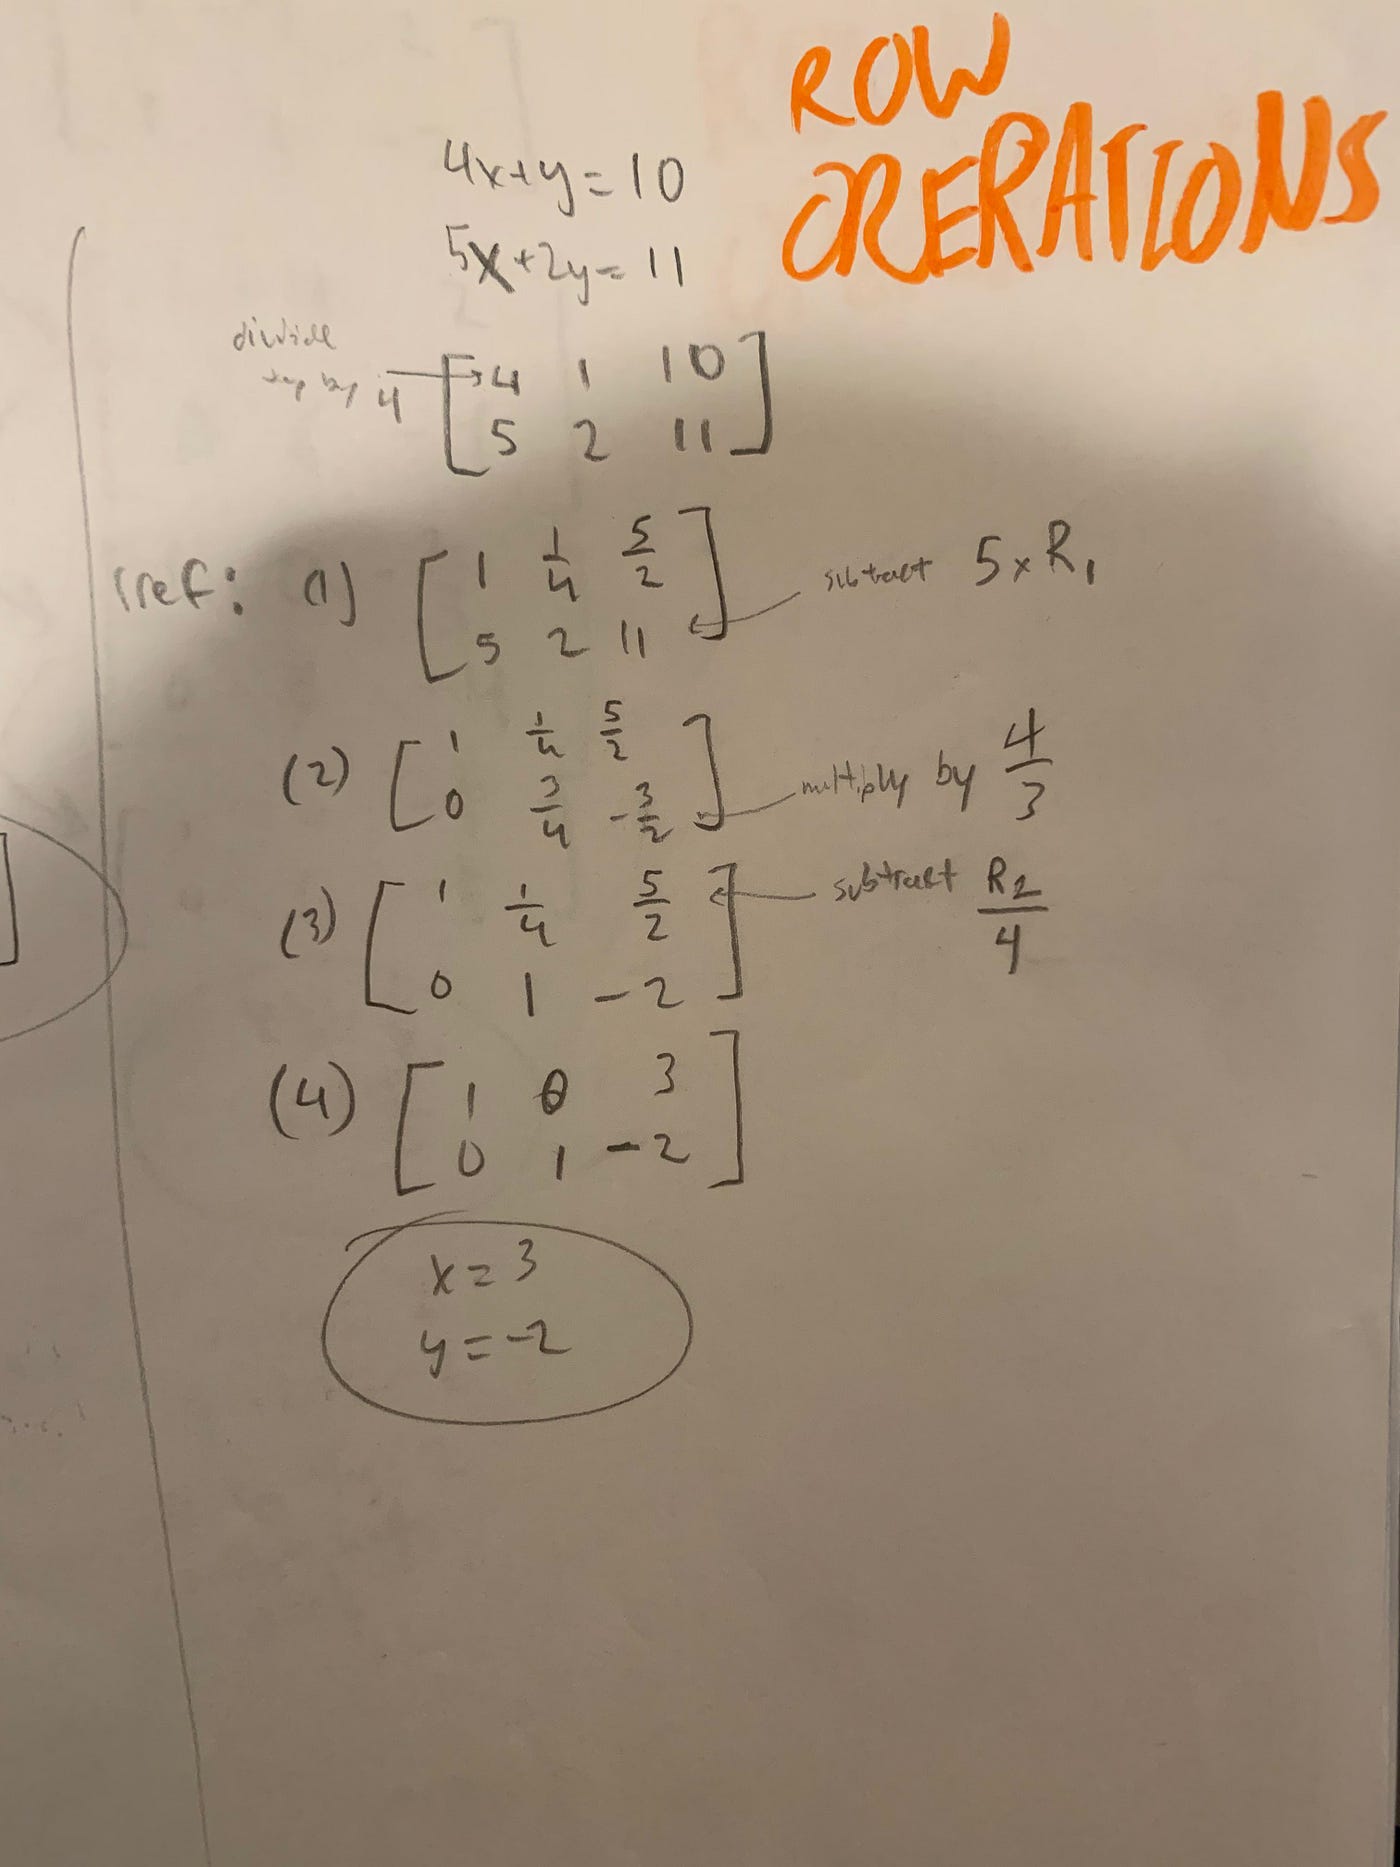 ROW
OPERATIONS
4x+y=10
5x+2y=11
divide
top by 4
[4 1 10]
[5 2 11]
rref: (1) [1 1/4 5/2]
[5 2 11] subtract 5×R₁
(2) [1 1/4 5/2]
[0 3/4 -3/2] multiply by 4/3
(3) [1 1/4 5/2] subtract R2/4
[0 1 -2]
(4) [1 0 3]
[0 1 -2]
x=3
y=-2